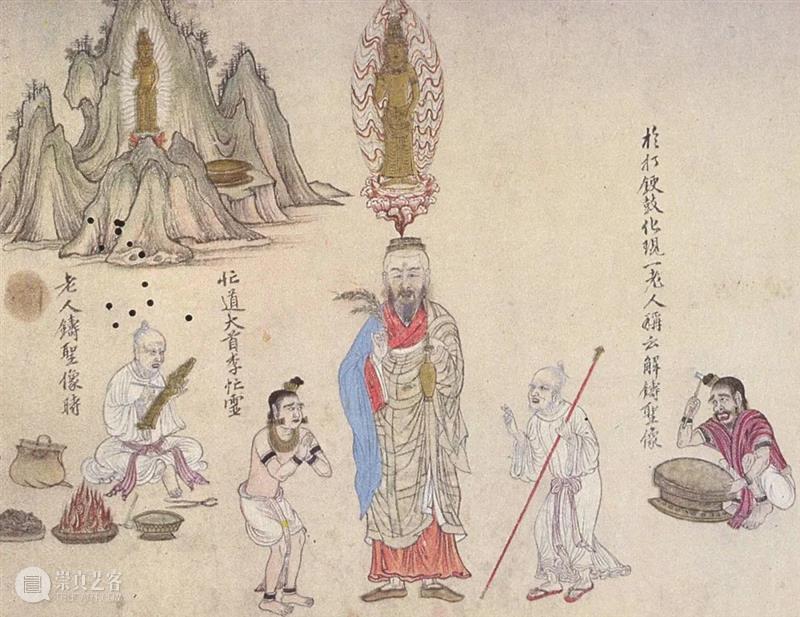 於打鼓化現一老人稱云解鑄聖像
忙道大首李忙靈
老人鑄聖像時
崇真艺客